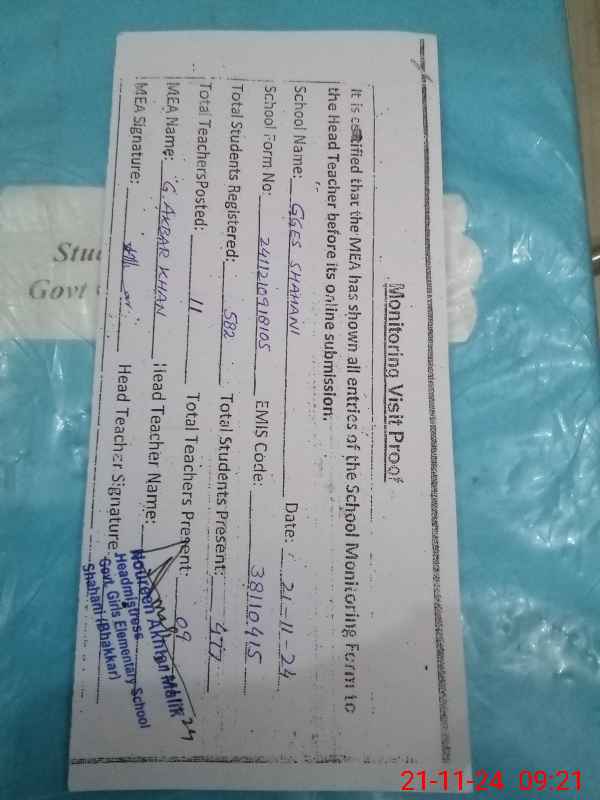 Monitoring Visit Proof
It is certified that the MEA has shown all entries of the School Monitoring Form to
the Head Teacher before its online submission.
School Name: GGES SHAHANI Date: 21-11-24
School Form No: 2411210918105 EMIS Code: 38110415
Total Students Registered: 582 Total Students Present: 477
Total TeachersPosted: 11 Total Teachers Present: 09
MEA Name: G. AKBAR KHAN Head Teacher Name:
MEA Signature: Head Teacher Signature:
Noureen Akhtar Malik
Headmistress
Govt. Girls Elementary School
Shahani (Bhakkar)
Govt
21-11-24 09:21